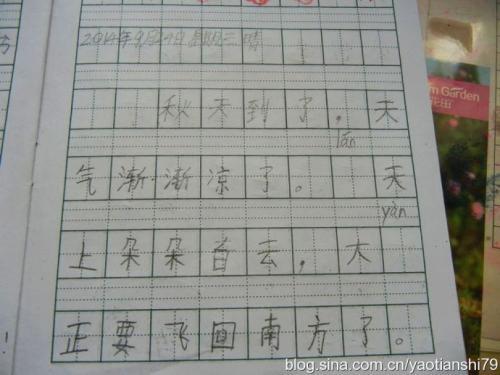 2014年9月24日 星期三 晴
秋天到了，天
lán
气渐渐凉了。 天
yàn
上朵朵白云，大
正要飞回南方了。
Garden
花田
blog.sina.com.cn/yaotianshi79